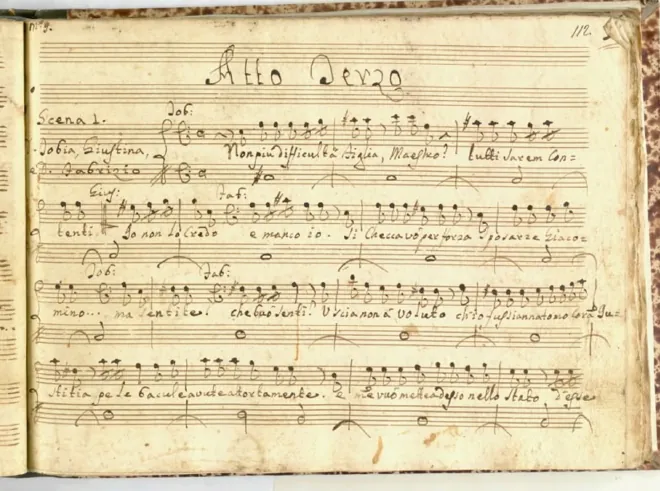 m.° 9.
112.
Atto Terzo
Scena 1. Tob:
Tobia, Giustina, Non più difficultà Figlia, Maestro? tutti sarem Con=
e D. Fabrizio
Gius: Fab:
tenti. Io non lo Credo e manco io. Si Checca vò per forza sposarze Giaco=
Tobi: Fab:
mino... ma sentite. che buo senti? Uscia non à voluto ch'io fussi annatomo Corà Ju=
stitia pe le avute atortamente. E me vuò mettea desso nello stato d'esse